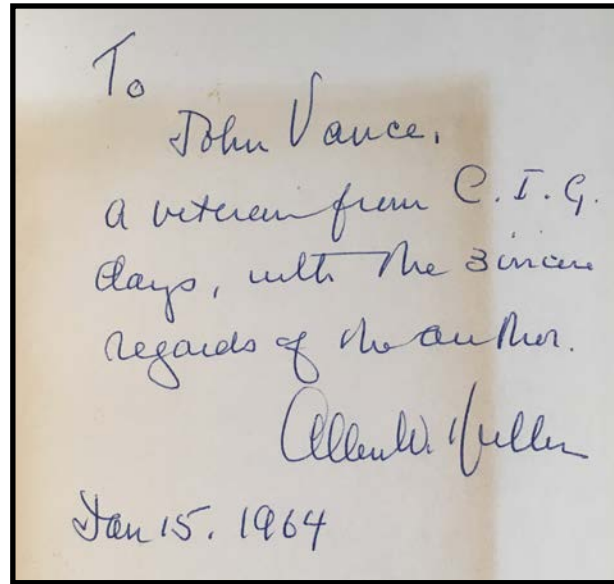 To
John Vance,
a veteran from C.I.G.
days, with the sincere
regards of the author.
Allen W. Dulles
Jan 15. 1964